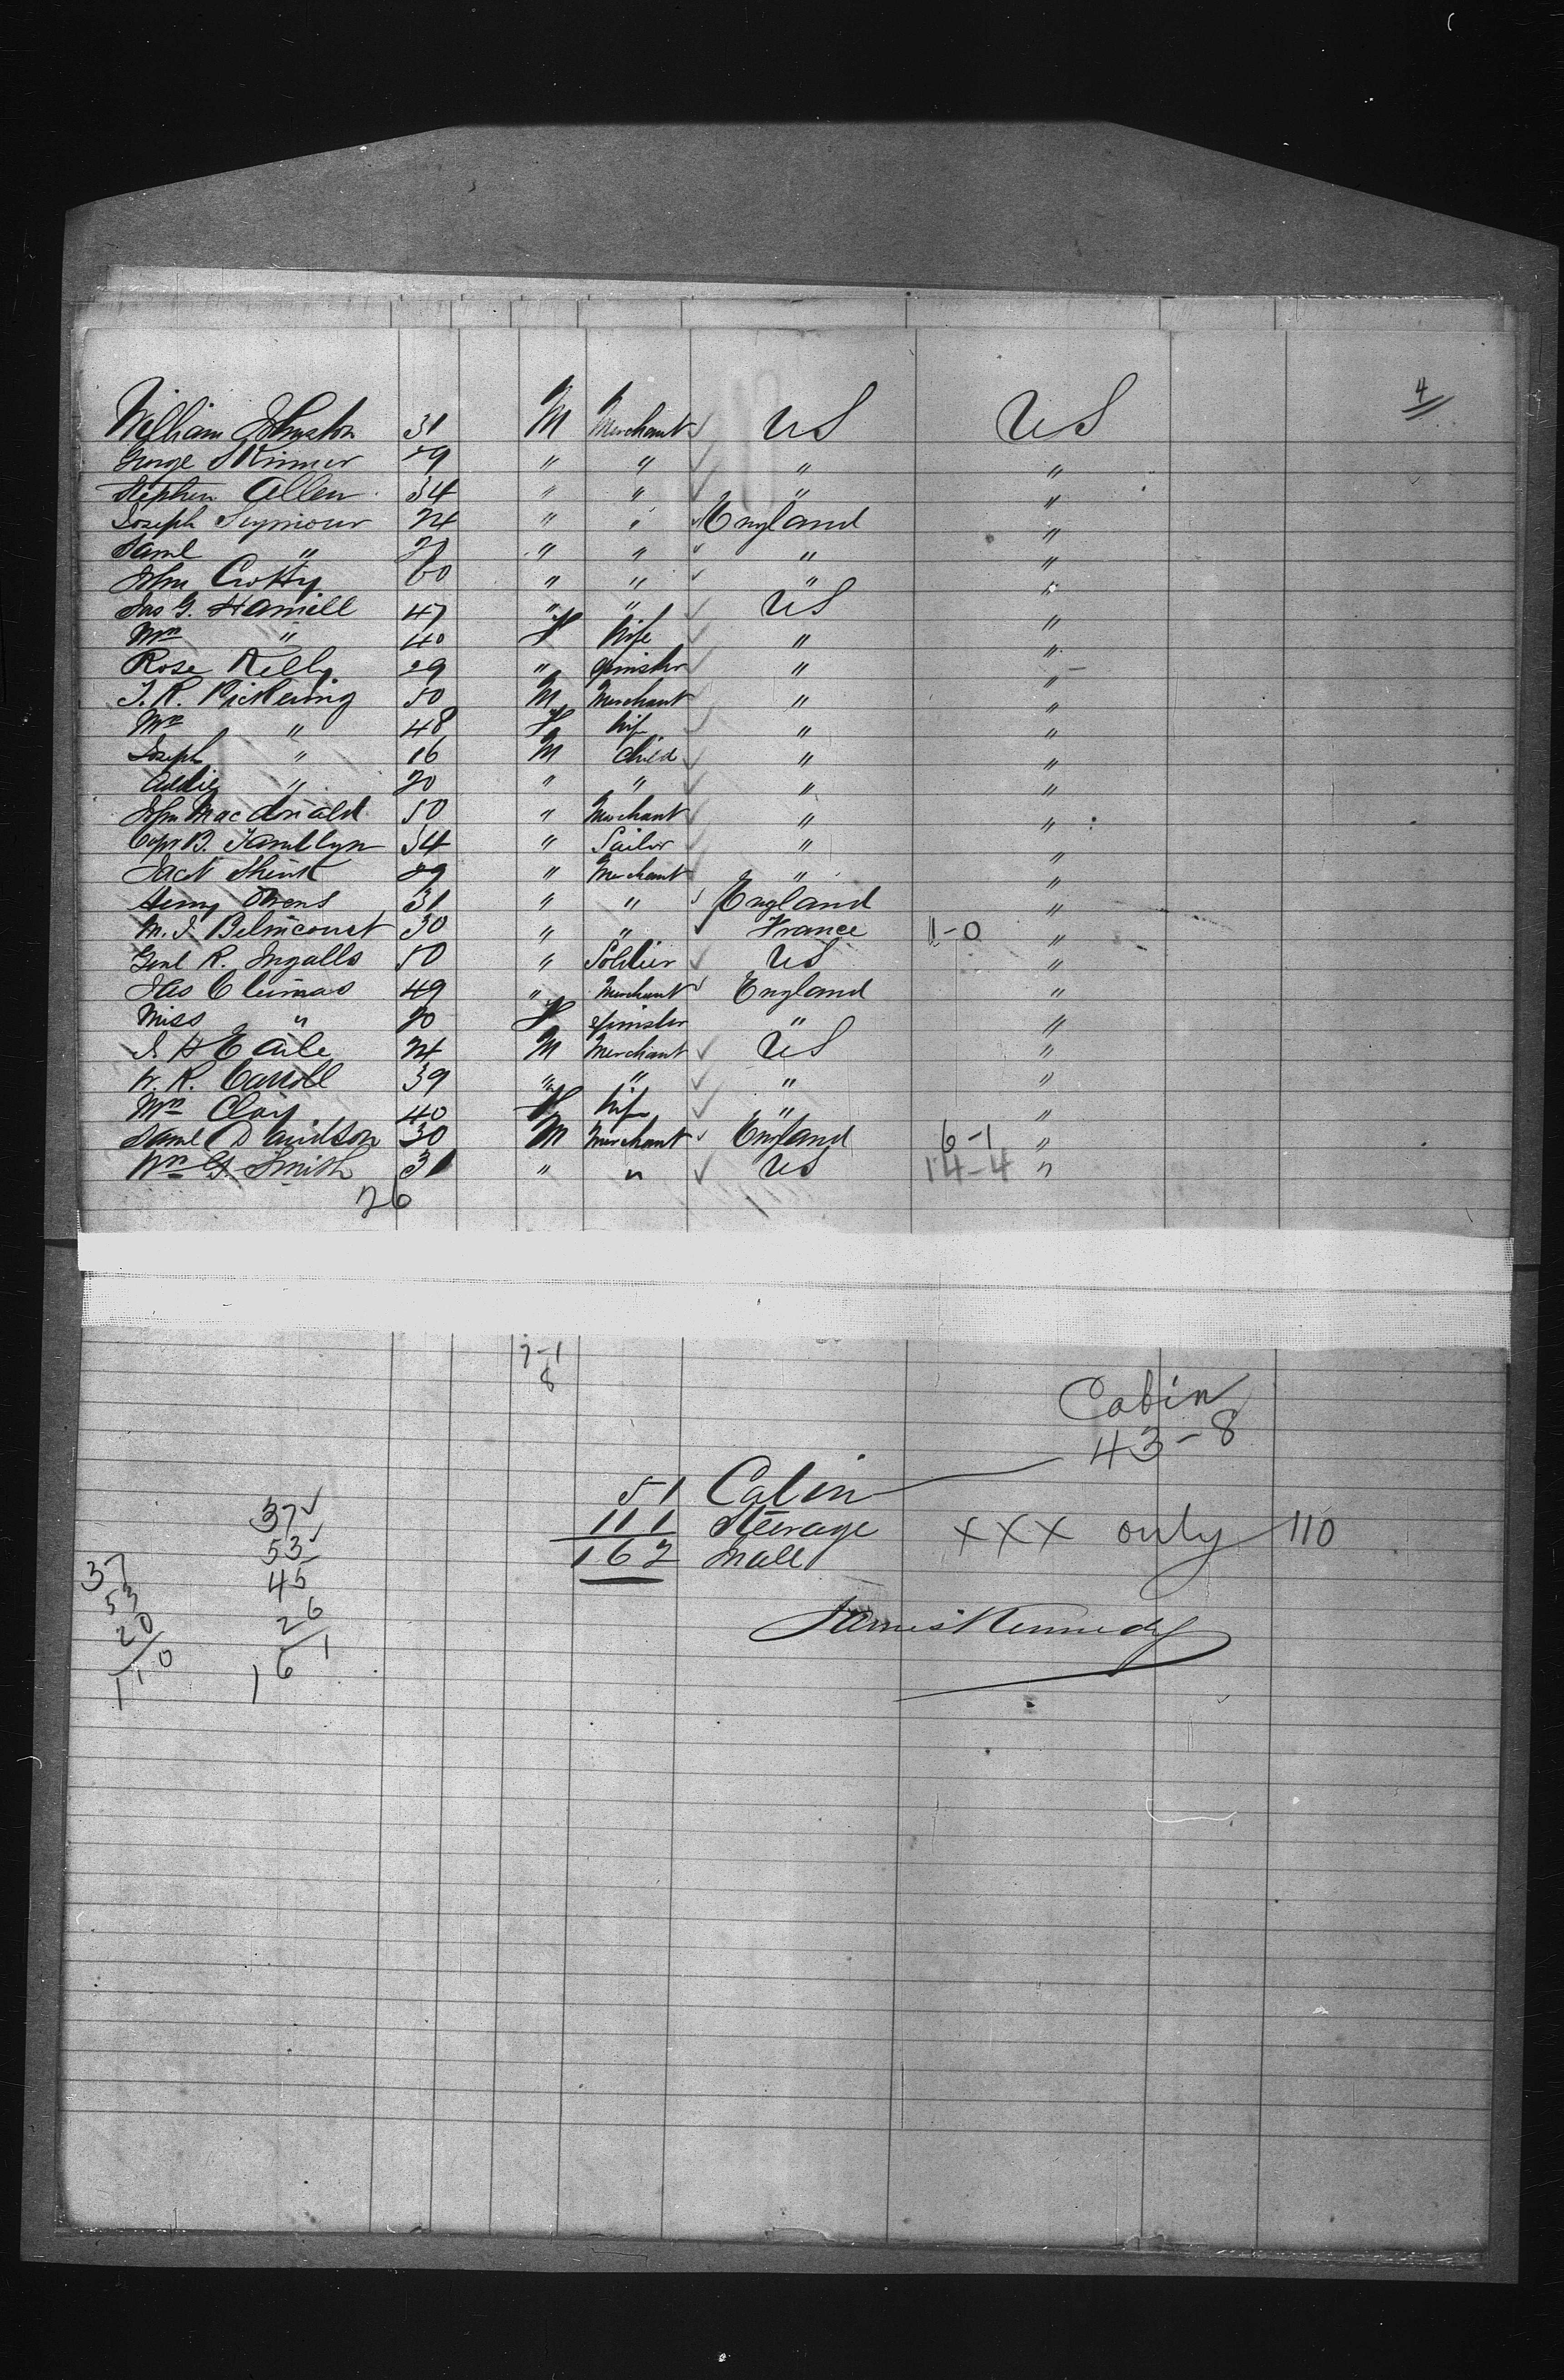 4
William Johnston 31 M Merchant US US
George Skinner 29 " " " "
Stephen Allen 34 " " " "
Joseph Seymour 24 " " England "
Saml " " " " "
John Crotty 60 " " " "
Jas G. Hamill 47 " " US "
Mrs " 40 F Wife " "
Rose Kelly 29 " Spinster " "
J. R. Pickering 50 M Merchant " "
Mrs " 48 F Wife " "
Joseph " 16 M Child " "
Addie " 20 " " " "
John MacDonald 50 " Merchant " "
B. Tamblyn 54 " Sailor " "
29 " Merchant " "
Henry Owens 31 " " England "
M. J. Belincourt 30 " " France 1-0 "
Genl R. Ingalls 50 " Soldier US "
Jas Clumas 49 " Merchant England "
Miss " 20 F Spinster " "
J H Earle 24 M Merchant US "
W. R. Carroll 39 " " " "
Mrs Clay 40 F Wife " "
Saml Davidson 30 M Merchant England 6-1 "
Wm G. Smith 31 " " US 14-4 "
26
7-1
8
Cabin
43-8
51 Cabin
111 Steerage xxx only 110
162 in all
James Kennedy
37
53
45
26
161
37
53
20
110